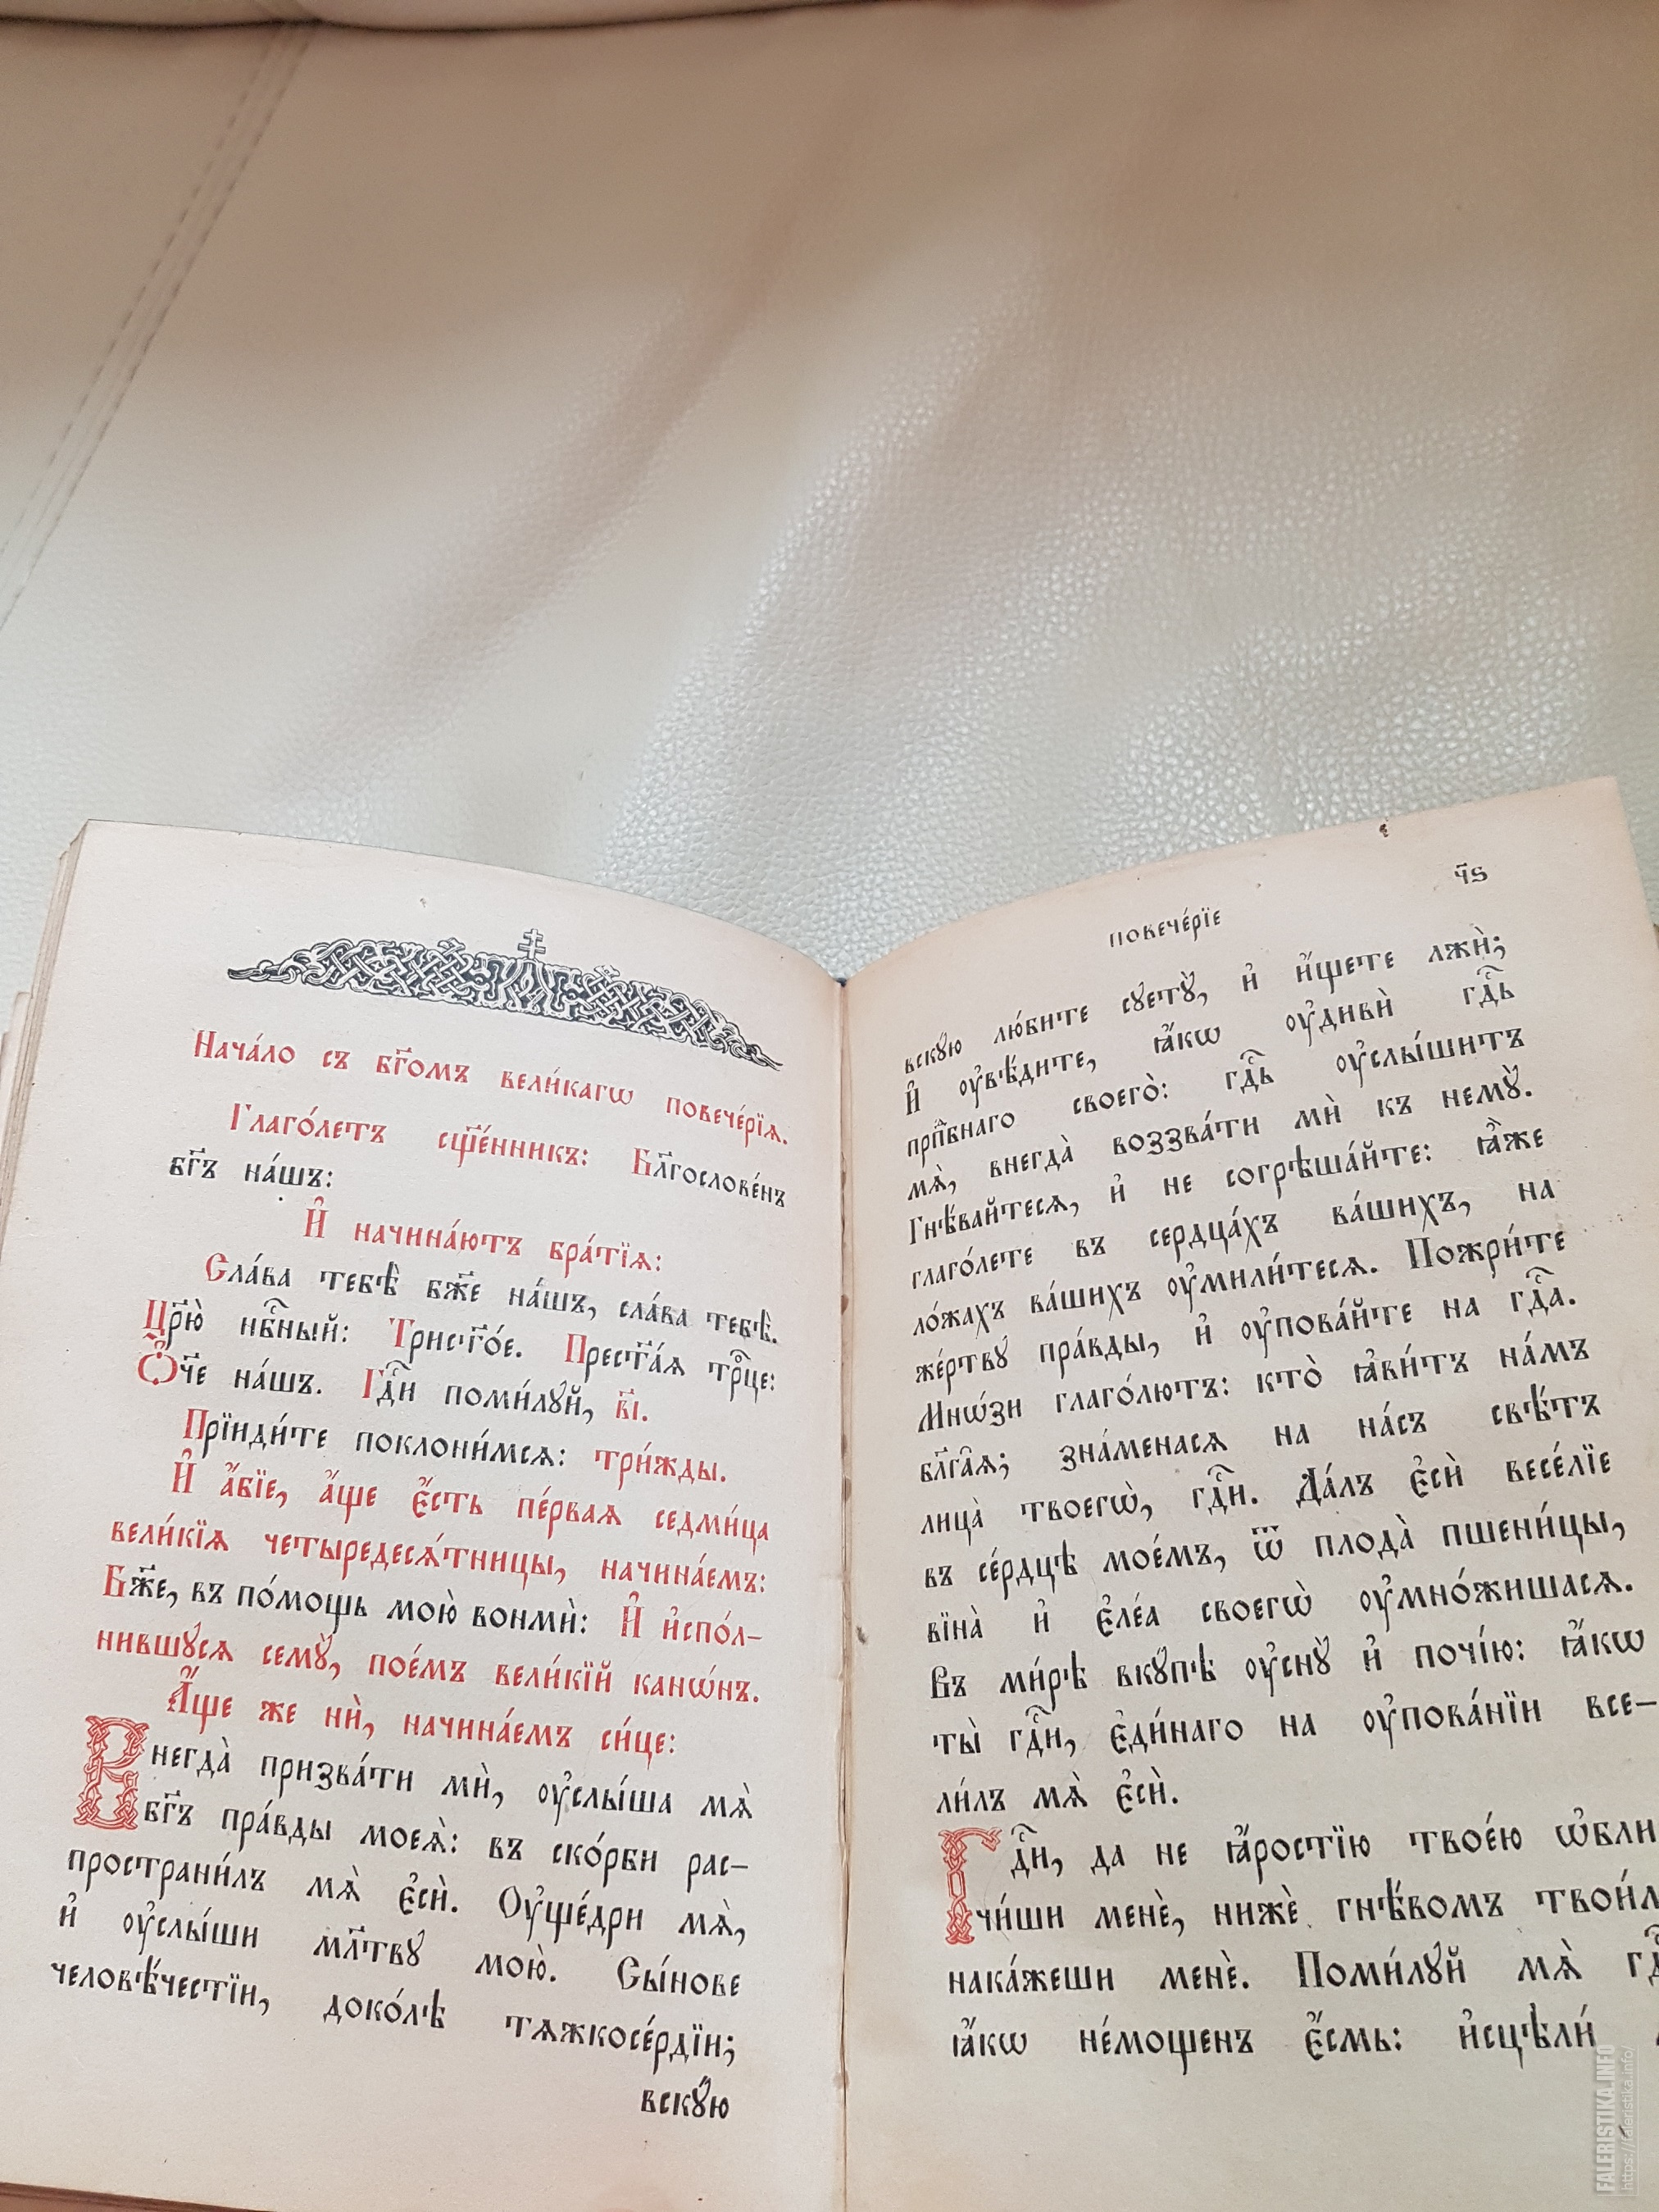 Нача́ло съ бг҃омъ вели́кагѡ повече́рїѧ.
Глаго́летъ сщ҃е́нникъ: Бл҃гослове́нъ
бг҃ъ на́шъ:
И҆ начина́ютъ бра́тїѧ:
Сла́ва тебѣ̀ бж҃е на́шъ, сла́ва тебѣ̀.
Цр҃ю̀ нб҇ный: Трист҃о́е. Прест҃а́ѧ тр҇це:
Ѻ҆́ч҃е на́шъ. Гд҇и поми́лꙋй, в҃і.
Прїиди́те поклони́мсѧ: три́жды.
И҆ а҆́бїе, а҆́ще є҆́сть пе́рваѧ седми́ца
вели́кїѧ четыредесѧ́тницы, начина́емъ:
Бж҃е, въ по́мощь мою̀ вонмѝ: И҆ и҆спо́л-
нившꙋсѧ семꙋ̀, пое́мъ вели́кїй канѡ́нъ.
А҆́ще же нѝ, начина́емъ си́це:
Внегда̀ призва́ти мѝ, ᲂу҆слы́ша мѧ̀
бг҃ъ пра́вды моеѧ̀: въ ско́рби рас-
пространи́лъ мѧ̀ є҆сѝ. Оу҆ще́дри мѧ̀,
и҆ ᲂу҆слы́ши мл҃твꙋ мою̀. Сы́нове
человѣ́честїи, доко́лѣ тѧжкосе́рдїи;
вскꙋ́ю
повече́рїе
ч҃ѕ
вскꙋ́ю лю́бите сꙋетꙋ̀, и҆ и҆́щете лжѝ;
И҆ ᲂу҆вѣ́дите, ꙗ҆́кѡ ᲂу҆дивѝ гд҇ь
прп҇бнаго своего̀: гд҇ь ᲂу҆слы́шитъ
мѧ̀, внегда̀ воззва́ти мѝ къ немꙋ̀.
Гнѣ́вайтесѧ, и҆ не согрѣша́йте: ꙗ҆̀же
глаго́лете въ сердца́хъ ва́шихъ, на
ло́жахъ ва́шихъ ᲂу҆мили́тесѧ. Пожри́те
же́ртвꙋ пра́вды, и҆ ᲂу҆пова́йте на гд҇а.
Мно́зи глаго́лютъ: кто̀ ꙗ҆ви́тъ на́мъ
бл҃га̑ѧ; зна́менасѧ на на́съ свѣ́тъ
лица̀ твоегѡ̀, гд҇и. Да́лъ є҆сѝ весе́лїе
въ се́рдцѣ мое́мъ, ѿ плода̀ пшени́цы,
вїна̀ и҆ є҆ле́а своегѡ̀ ᲂу҆мно́жишасѧ.
Въ ми́рѣ вкꙋ́пѣ ᲂу҆снꙋ̀ и҆ почі́ю: ꙗ҆́кѡ
ты̀ гд҇и, є҆ди́наго на ᲂу҆пова́нїи все-
ли́лъ мѧ̀ є҆сѝ.
Гд҇и, да не ꙗ҆́ростїю твое́ю ѡ҆бли
чи́ши менѐ, нижѐ гнѣ́вомъ твои́м
нака́жеши менѐ. Поми́лꙋй мѧ̀ гд҇
ꙗ҆́кѡ не́мощенъ є҆́смь: и҆сцѣли́
FALERISTIKA.INFO
https://faleristika.info/